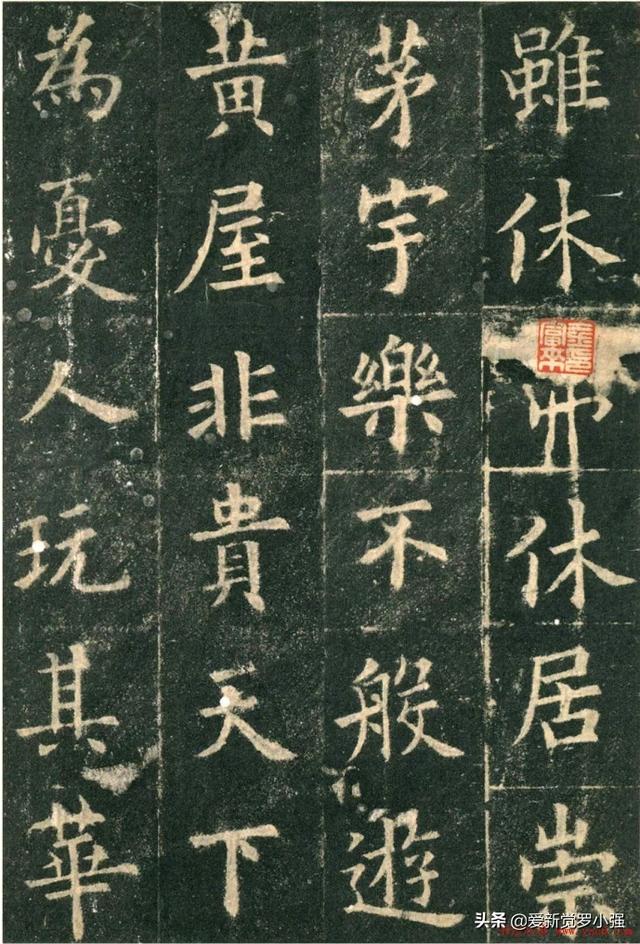 雖休休居崇
茅宇樂不般遊
黃屋非貴天下
為憂人玩其華
头条 @爱新觉罗小强